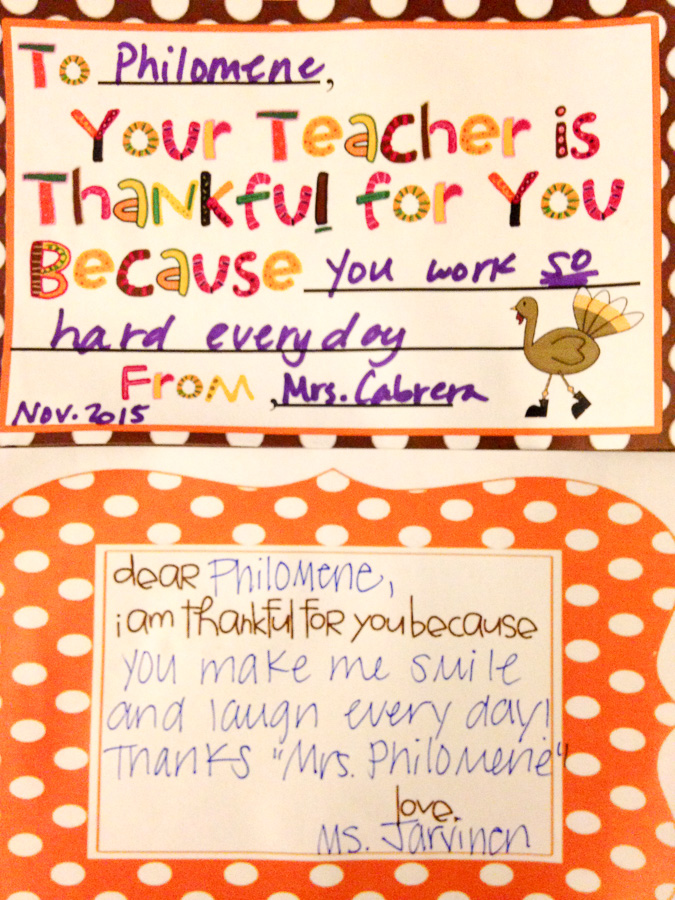 To Philomene,
Your Teacher is
Thankful for You
Because you work so
hard everyday
From, Mrs. Cabrera
Nov. 2015
dear Philomene,
i am thankful for you because
you make me smile
and laugh every day!
Thanks "Mrs. Philomene"
love,
Ms. Jarvinen